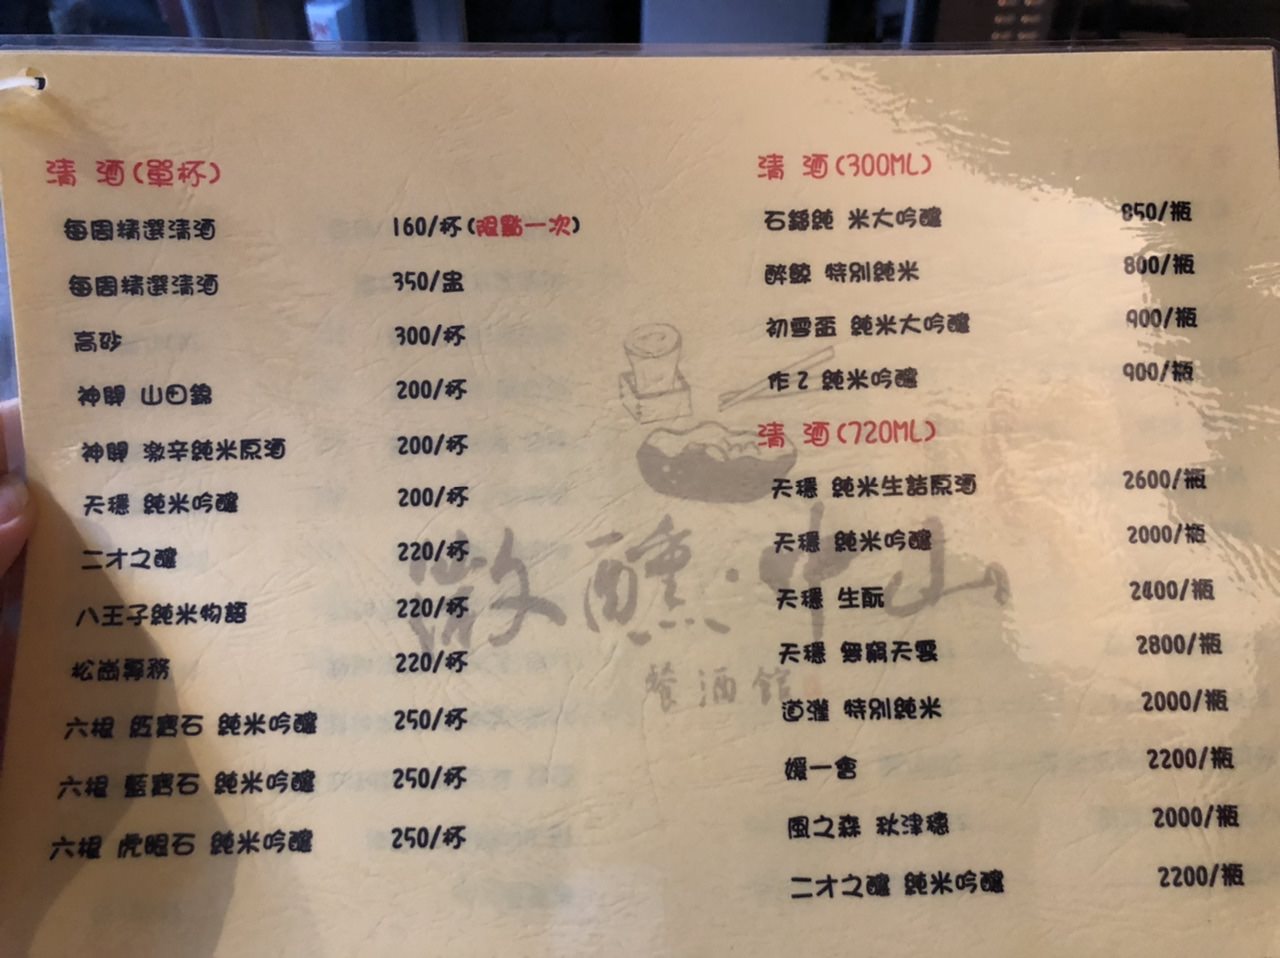 清 酒(單杯)
每周精選清酒 160/杯(限點一次)
每周精選清酒 350/盅
高砂 300/杯
神開 山田錦 200/杯
神開 激辛純米原酒 200/杯
天穩 純米吟釀 200/杯
二才之釀 220/杯
八王子純米物語 220/杯
松尚專務 220/杯
六根 紅寶石 純米吟釀 250/杯
六根 藍寶石 純米吟釀 250/杯
六根 虎眼石 純米吟釀 250/杯
清 酒(300ML)
石鎚純 米大吟釀 850/瓶
醉鯨 特別純米 800/瓶
初雪盃 純米大吟釀 900/瓶
作Z 純米吟釀 900/瓶
清 酒(720ML)
天穩 純米生詰原酒 2600/瓶
天穩 純米吟釀 2000/瓶
天穩 生酛 2400/瓶
天穩 無窮天雲 2800/瓶
道灌 特別純米 2000/瓶
媛一會 2200/瓶
風之森 秋津穗 2000/瓶
二才之釀 純米吟釀 2200/瓶
微醺·中山
餐酒館